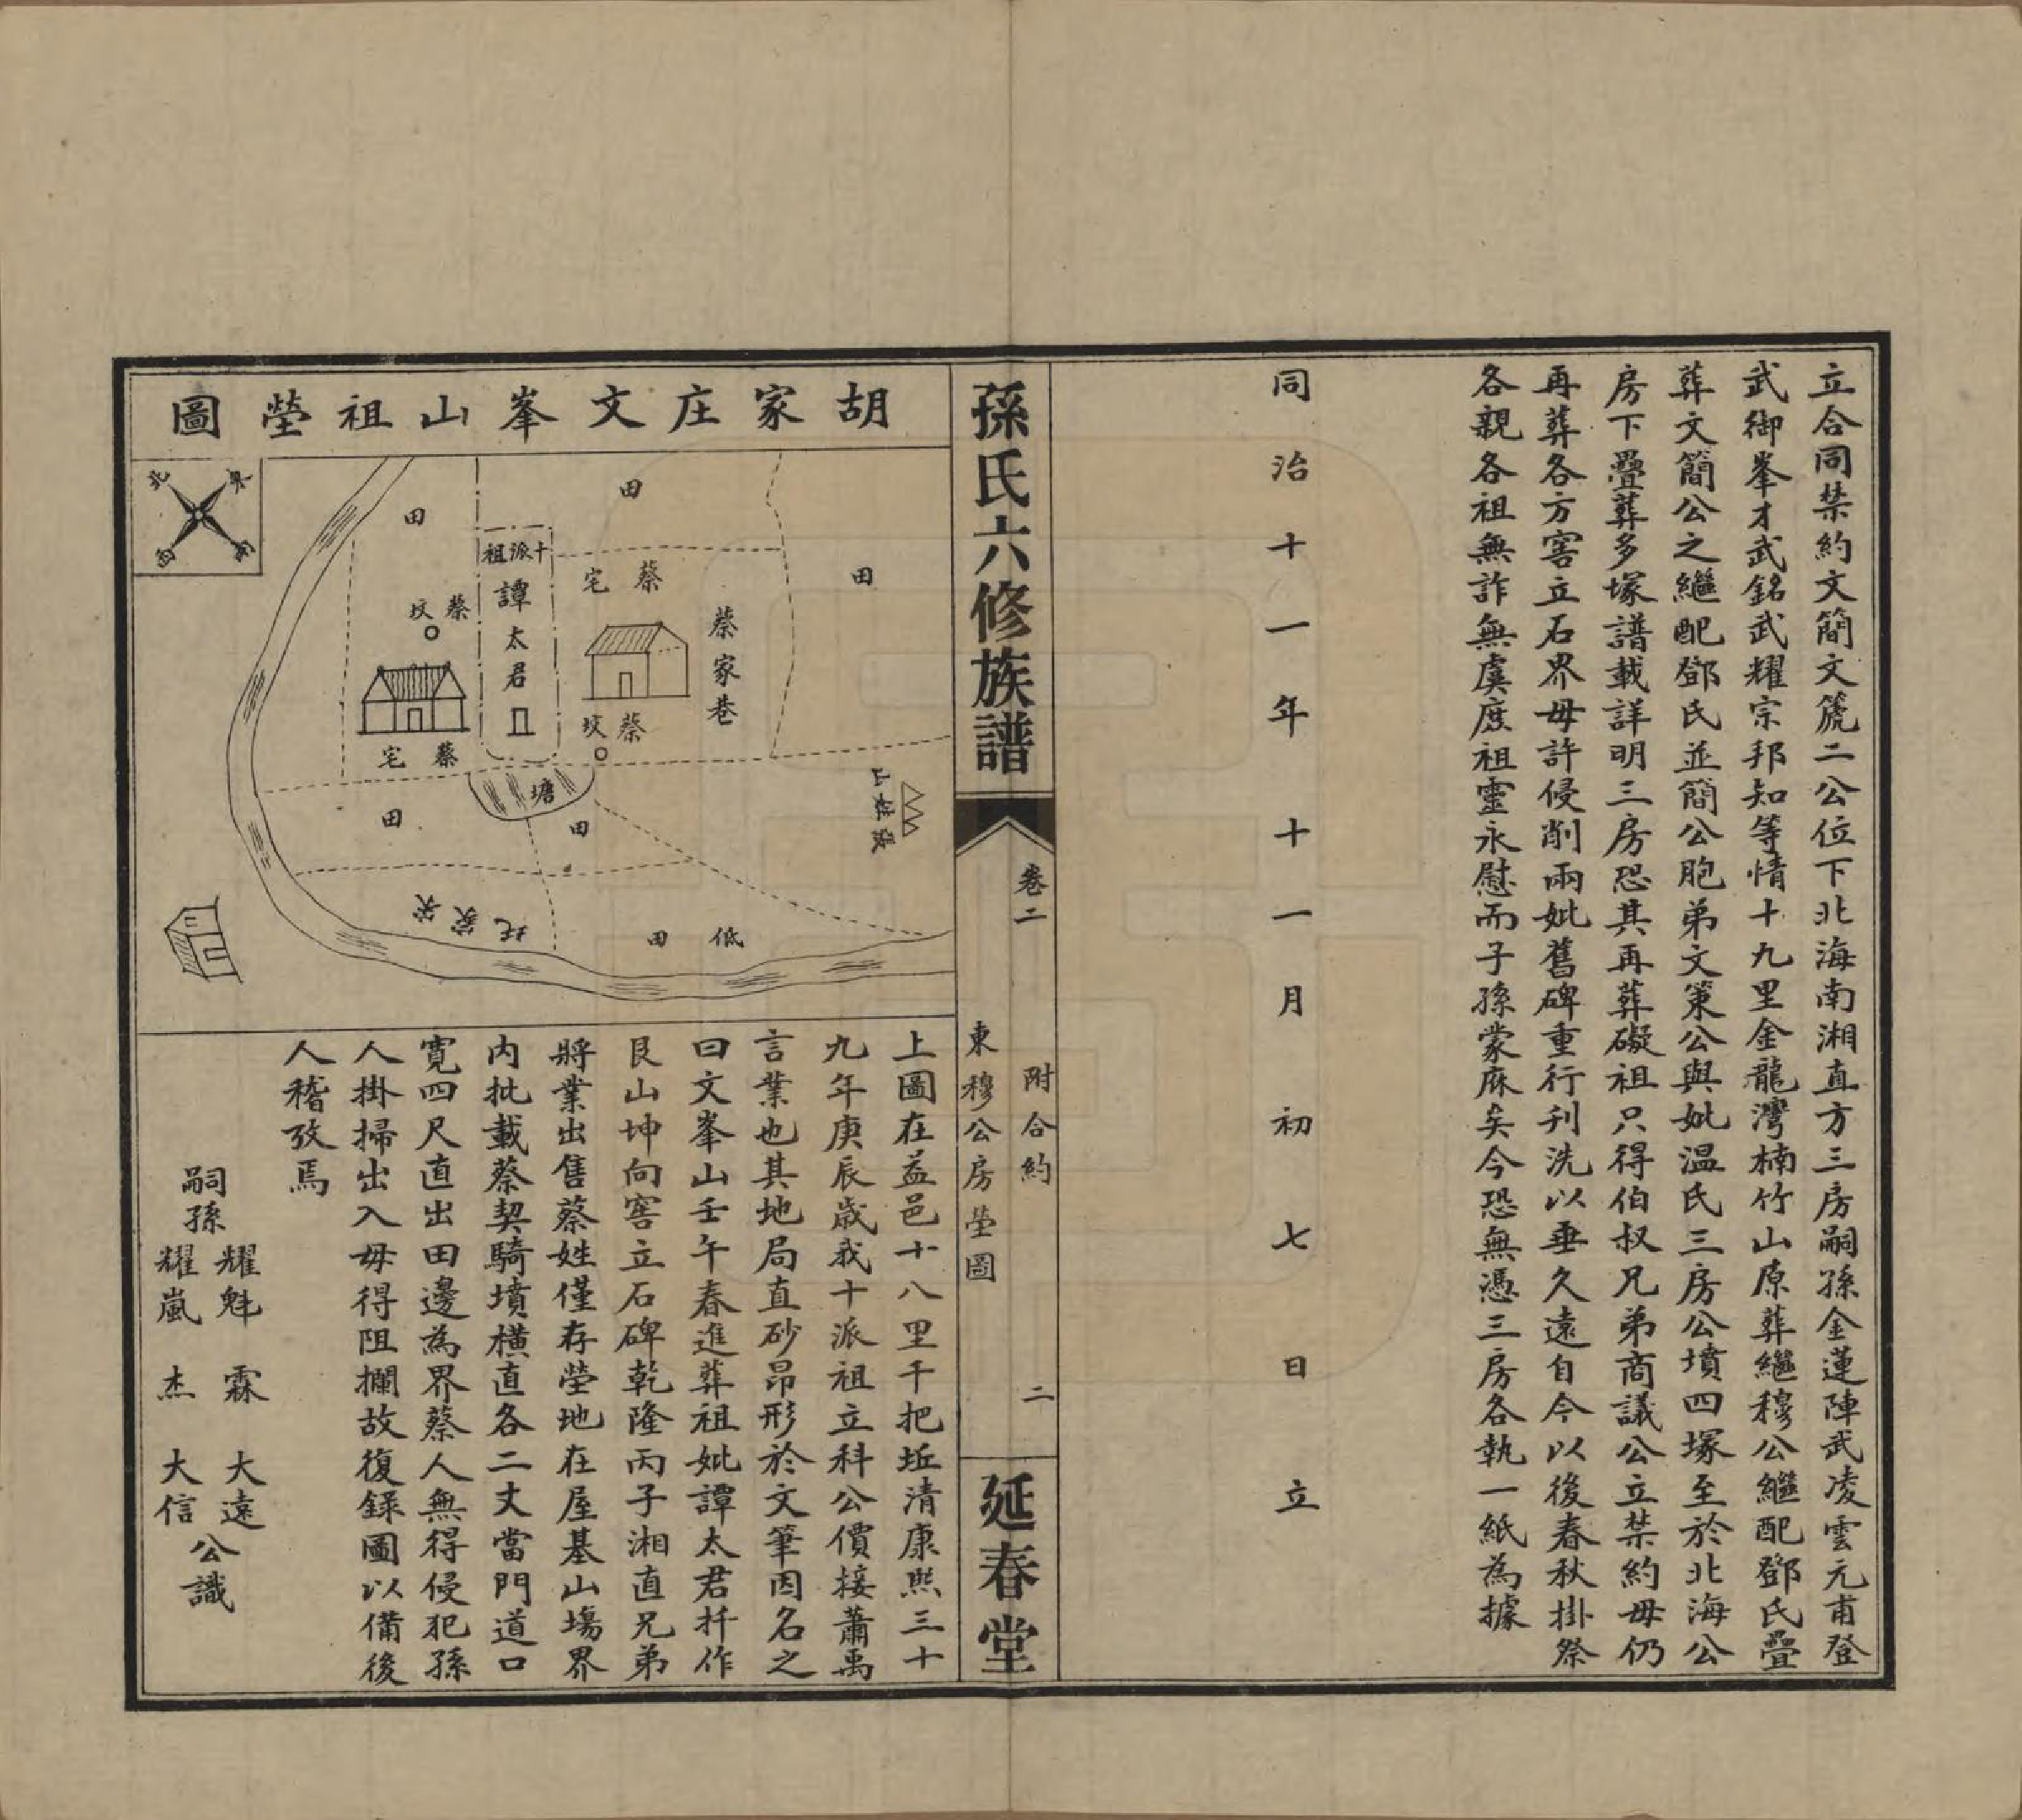 立合同禁約文簡文篪二公位下北海南湘直方三房嗣孫金蓮陣武凌雲元甫登
武御峯才武銘武耀宗邦知等情十九里金龍灣楠竹山原葬繼穆公繼配鄧氏疊
葬文簡公之繼配鄧氏並簡公胞弟文策公與妣温氏三房公墳四塚至於北海公
房下疊葬多塚譜載詳明三房恐其再葬礙祖只得伯叔兄弟商議公立禁約毋仍
再葬各方窖立石界毋許侵削兩妣舊碑重行刋洗以垂久遠自今以後春秋掛祭
各親各祖無詐無虞庶祖靈永慰而子孫蒙庥矣今恐無憑三房各執一紙為據
同治十一年十一月初七日立
孫氏六修族譜
卷二
附合約
東穆公房塋圖
二
延春堂
胡家庄文峯山祖塋圖
東
北
田
田
田
十派祖
譚太君
蔡宅
蔡家巷
蔡坟
蔡坟
蔡宅
塘
田
田
低田
上圖在益邑十八里千把坵清康熙三十
九年庚辰歲我十派祖立科公價接蕭禹
言業也其地局直砂昂形於文筆因名之
曰文峯山壬午春進葬祖妣譚太君扦作
艮山坤向窖立石碑乾隆丙子湘直兄弟
將業出售蔡姓僅存塋地在屋基山塲界
内批載蔡契騎墳橫直各二丈當門道口
寬四尺直出田邊為界蔡人無得侵犯孫
人掛掃出入毋得阻攔故復録圖以備後
人稽攷焉
嗣孫
耀魁 霖 大遠
耀嵐 杰 大信
公識